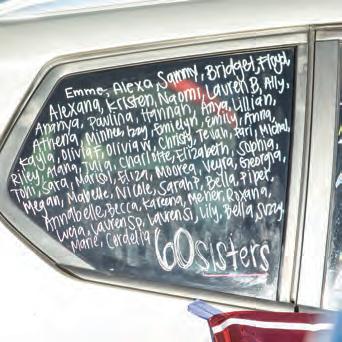 Emme, Alexa, Sammy, Bridget, Floyd,
Alexana, Kristen, Naomi, Lauren B, Ally,
Ananya, Paulina, Hannah, Anya, Lillian,
Athena, Minhee, Emelyn, Emily, Anna,
Kayla, Olivia F, Olivia W, Christy, Tevah, Pari, Michal,
Riley, Talia, Charlotte, Elizabeth, Sophia,
Tori, Sara, Marisol, Eliza, Moorea, Neyra, Georgia,
Megan, Mabelle, Nicole, Sarah F, Bella, Piper,
Annabelle, Becca, Kareena, Meher, Roxana,
Lucia, Lauren SP, Lauren Si, Lily, Bella, Suzy,
Marie, Cordelia
60 sisters